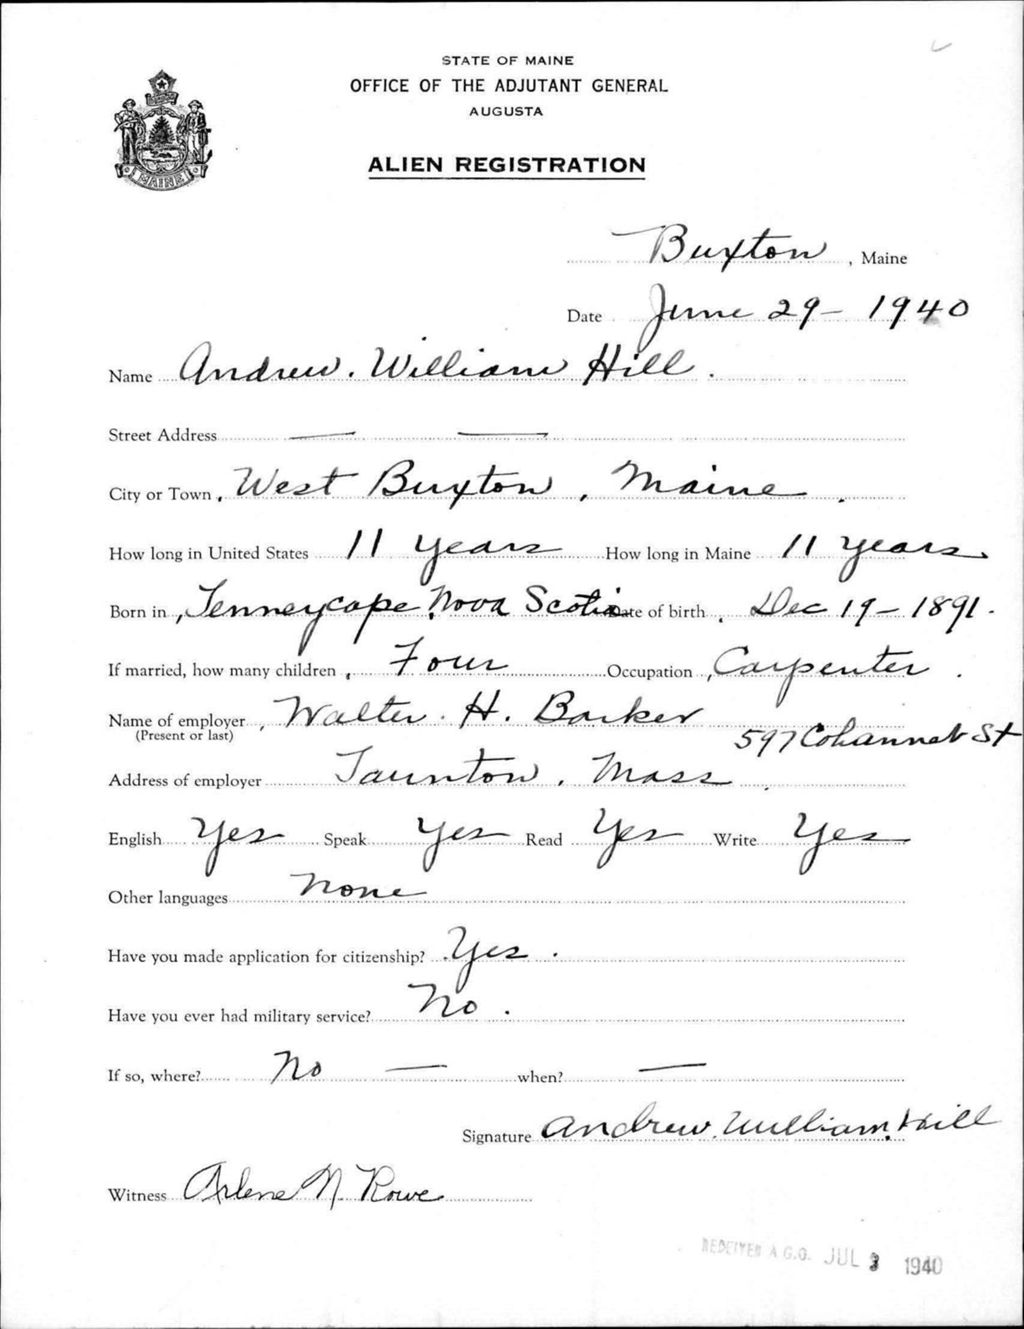 STATE OF MAINE
OFFICE OF THE ADJUTANT GENERAL
AUGUSTA
ALIEN REGISTRATION
MAINE
Buxton, Maine
Date June 29 - 1940
Name Andrew. William Hill.
Street Address — —
City or Town, West Buxton, Maine.
How long in United States 11 years How long in Maine 11 years.
Born in, Tenneycape, Nova Scotia Date of birth, Dec 19 - 1891.
If married, how many children, Four Occupation, Carpenter.
Name of employer, Walter. H. Barker
(Present or last)
597 Cohannet St
Address of employer Taunton, Mass.
English Yes Speak Yes Read Yes Write Yes
Other languages None
Have you made application for citizenship? Yes.
Have you ever had military service? No.
If so, where? No — when? —
Signature Andrew. William. Hill
Witness Arlene N. Rowe
RECEIVED A.G.O. JUL 3 1940